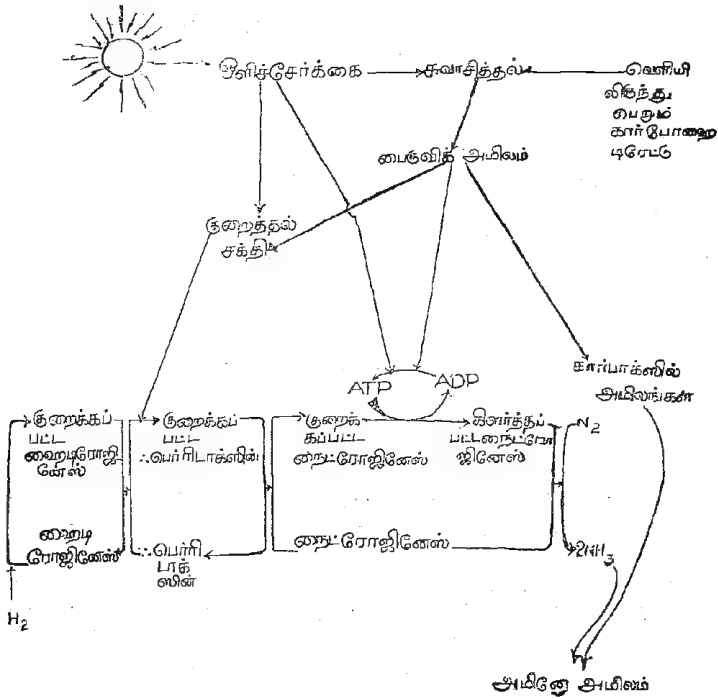 ஒளிச்சேர்க்கை
சுவாசித்தல்
வெளியி
லிருந்து
பெரும்
கார்போஹை
டிரேட்டு
பைருவிக் அமிலம்
குறைத்தல்
சக்தி
கார்பாக்ஸில்
அமிலங்கள்
ATP
ADP
குறைக்கப்
பட்ட
ஹைடிரோஜி
னேஸ்
குறைக்கப்
பட்ட
ஃபெர்ரிடாக்ஸின்
குறைக்
கப்பட்ட
நைட்ரோஜினேஸ்
கிளர்த்தப்
பட்டநைட்ரோ
ஜினேஸ்
N2
ஹைடி
ரோஜினேஸ்
ஃபெர்ரி
டாக்
ஸின்
நைட்ரோஜினேஸ்
2NH3
H2
அமினோ அமிலம்